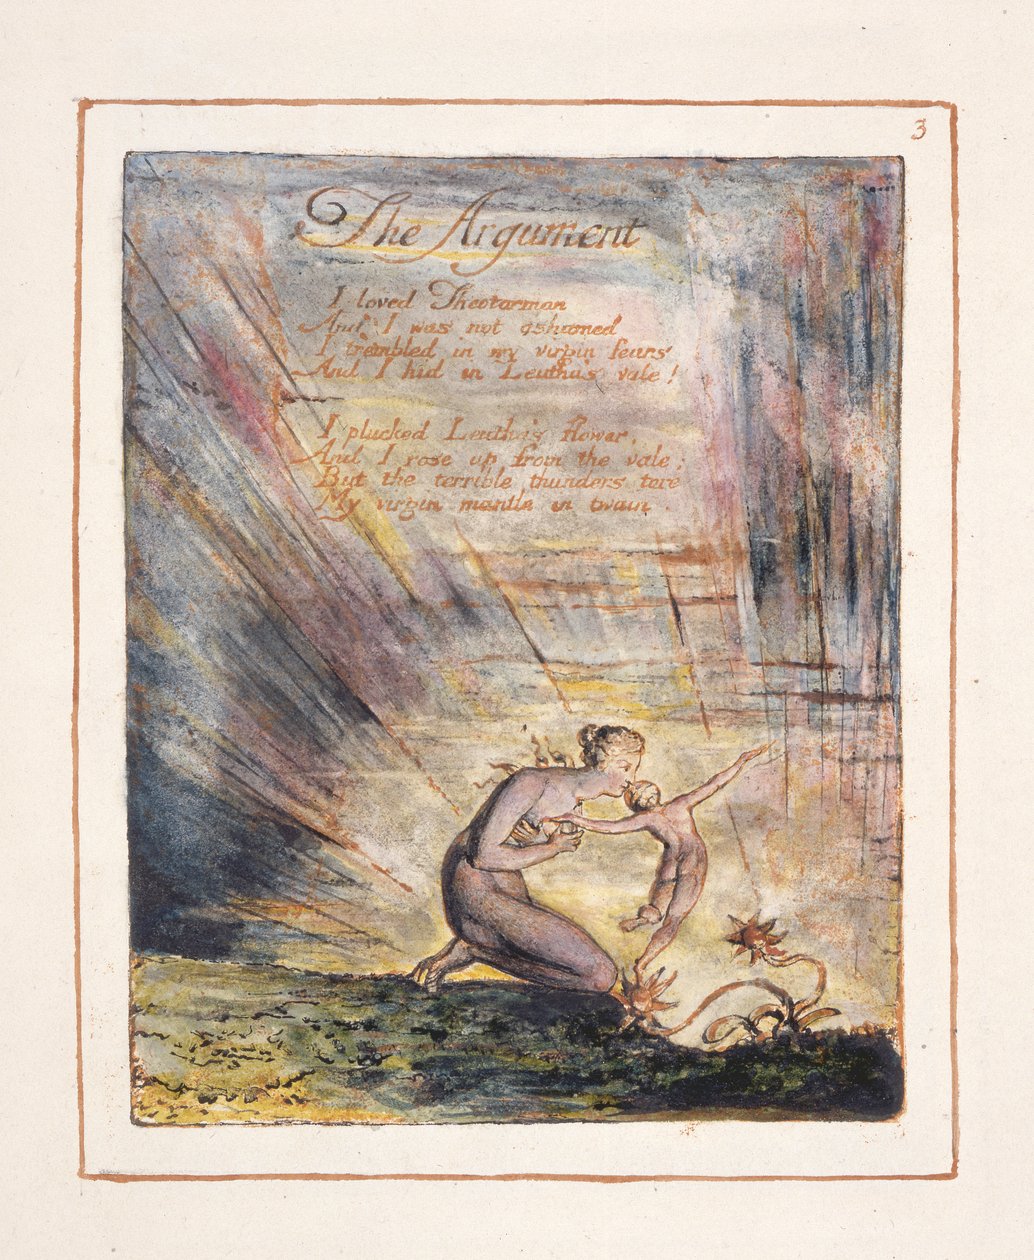 3
The Argument
I loved Theotormon
And I was not ashamed
I trembled in my virgin fears
And I hid in Leutha's vale!
I plucked Leutha's flower,
And I rose up from the vale;
But the terrible thunders tore
My virgin mantle in twain.